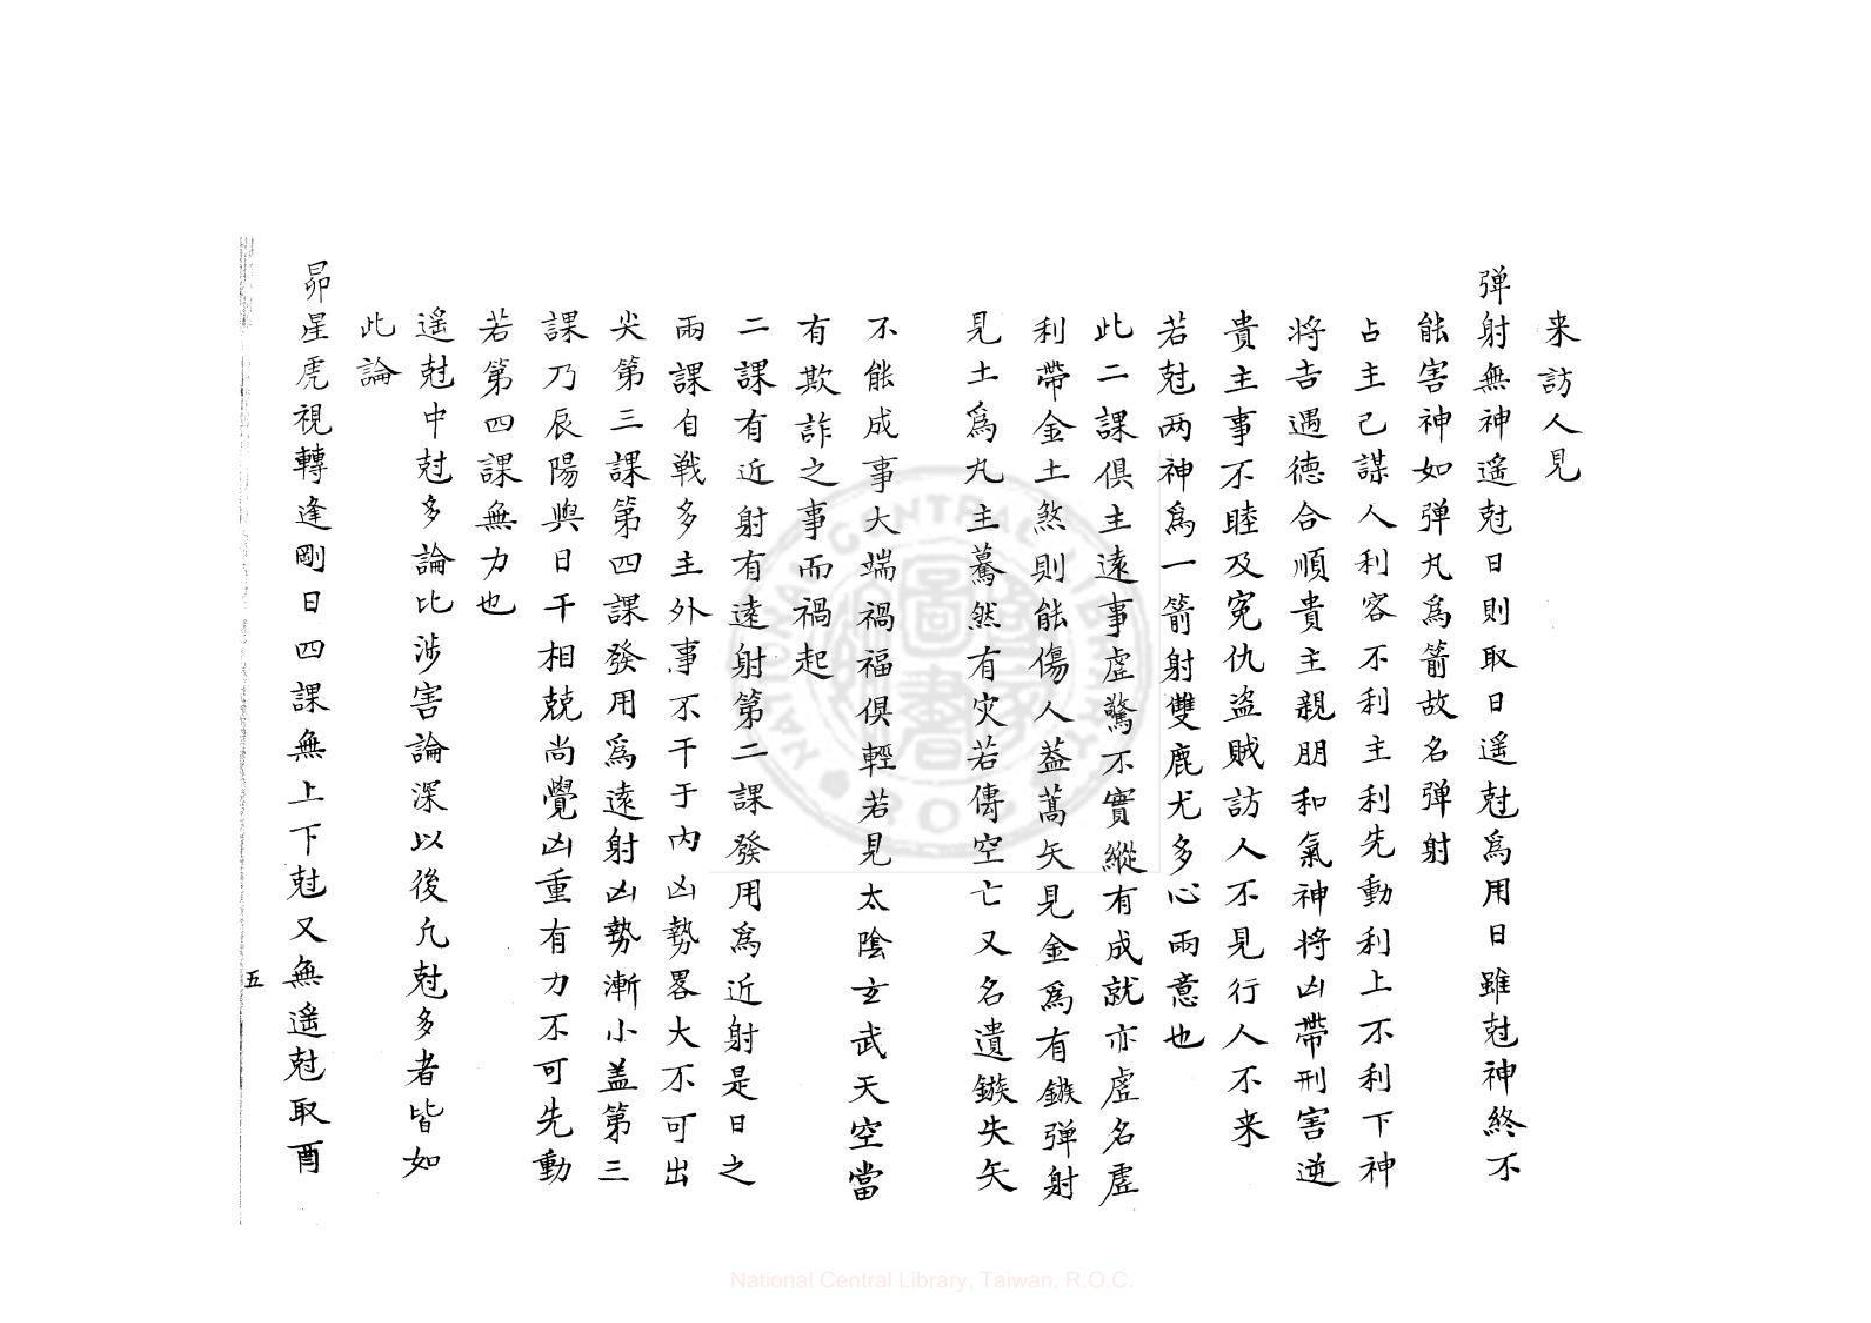 来訪人見
弹射無神遥尅日則取日遥尅爲用日雖尅神終不
能害神如弹丸爲箭故名弹射
占主己謀人利客不利主利先動利上不利下神
将吉遇德合順貴主親朋和氣神将凶帶刑害逆
貴主事不睦及寃仇盗賊訪人不見行人不来
若尅两神爲一箭射雙鹿尤多心兩意也
此二課俱主遠事虛驚不實縱有成就亦虛名虛
利帶金土煞則能傷人葢蒿矢見金爲有鏃弹射
見土爲丸主驀然有灾若傳空亡又名遺鏃失矢
不能成事大端禍福俱輕若見太陰玄武天空當
有欺詐之事而禍起
二課有近射有遠射第二課發用爲近射是日之
兩課自戰多主外事不干于内凶勢畧大不可出
尖第三課第四課發用爲遠射凶勢漸小盖第三
課乃辰陽與日干相兢尚覺凶重有力不可先動
若第四課無力也
遥尅中尅多論比涉害論深以後凢尅多者皆如
此論
昴星虎視轉逢剛日四課無上下尅又無遥尅取酉
五
National Central Library, Taiwan, R.O.C.